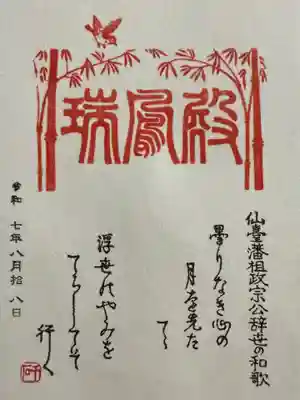 瑞鳳殿
仙臺藩祖政宗公辞世の和歌
曇りなき心の
月を先た
てゝ
浮世のやみを
てらしてそ
行く
令和七年八月拾八日